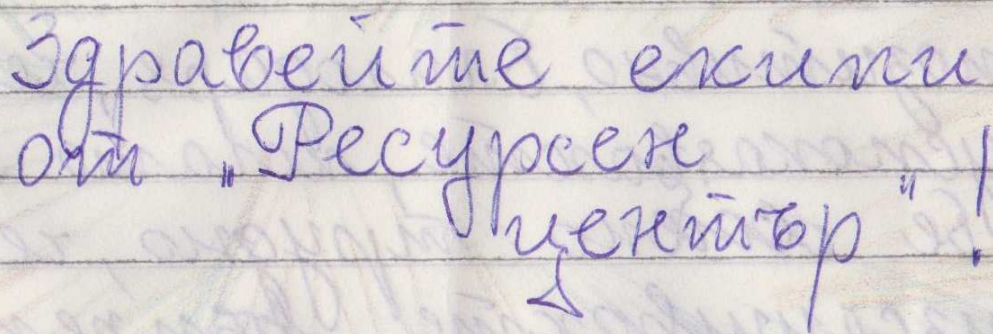 Здравейте екипи
от „Ресурсен
център“!